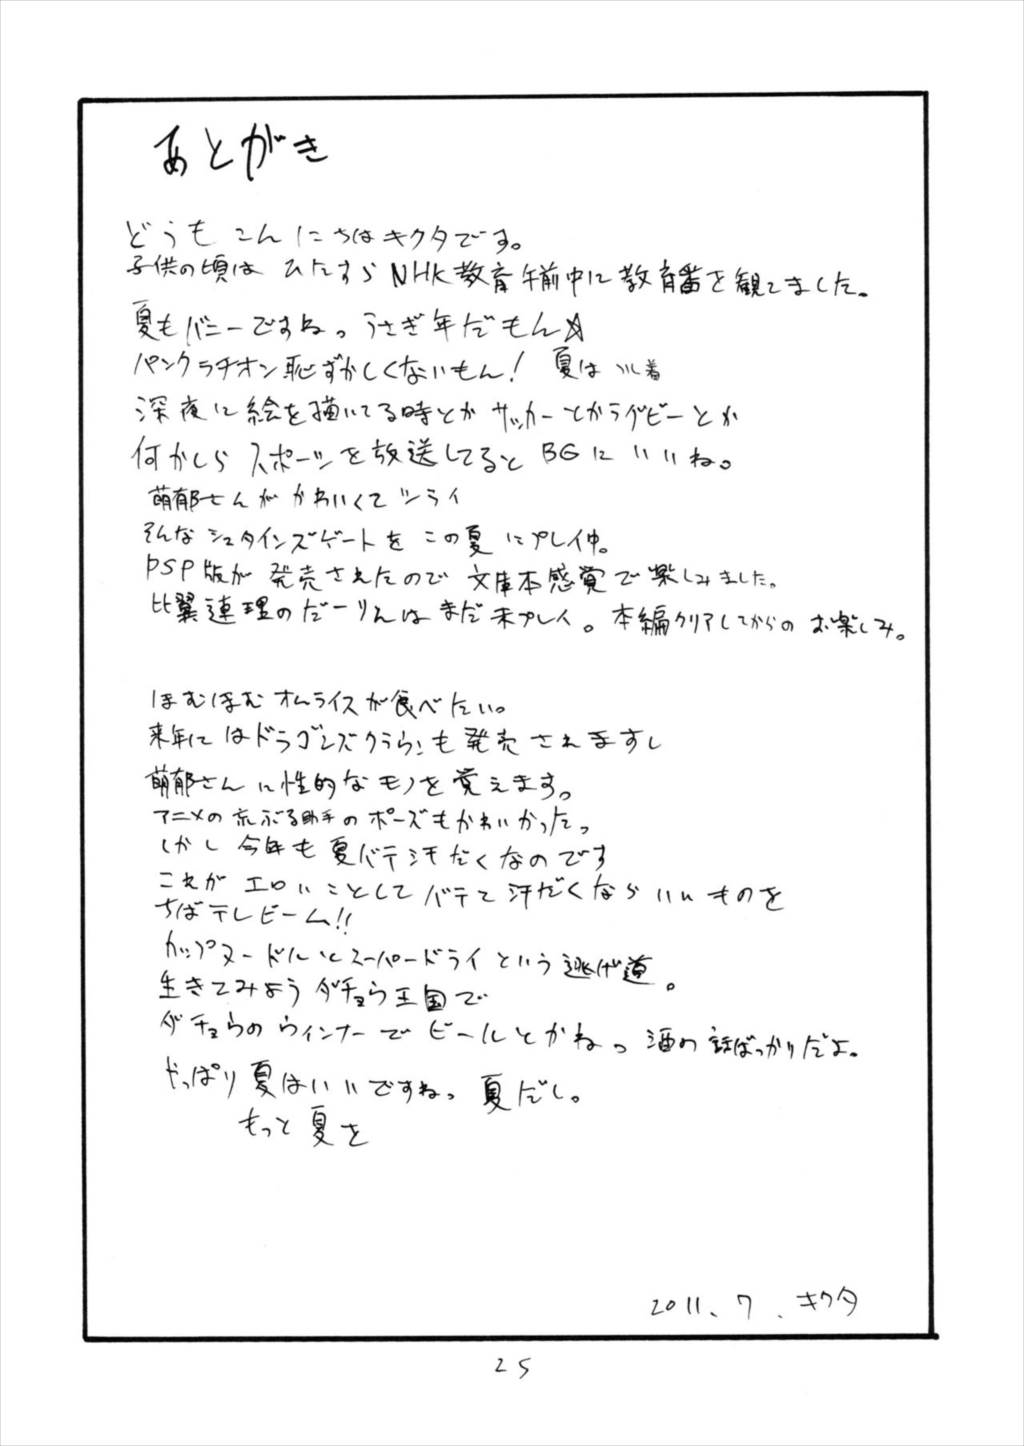 あとがき
どうもこんにちはキクタです。
子供の頃は ひたすらNHK教育午前中に教育番を観てました。
夏もバニーですねっ うさぎ年だもん☆
パンクラチオン恥ずかしくないもん! 夏は
深夜に絵を描いてる時とか サッカーとかラグビーとか
何かしら スポーツを放送してると BGにいいね。
萌郁さんがかわいくてツライ
そんな シュタインズゲートを この夏にプレイ中。
PSP版が 発売されたので 文庫本感覚で楽しみました。
比翼連理のだーりんは まだ未プレイ。本編クリアしてからの お楽しみ。
ほむほむオムライスが食べたい。
来年にはドラゴンズクラウンも発売されますし
萌郁さんに性的なモノを覚えます。
アニメの荒ぶる助手のポーズもかわいかったっ
しかし 今年も夏バテ汗だくなのです
これが エロいことしてバテて汗だくならいいものを
ちばテレビーム!!
カップヌードルとスーパードライという逃げ道。
生きてみよう ダチョウ王国で
ダチョウのウィンナーで ビールとかねっ 酒の話ばっかりだよ。
やっぱり夏はいいですねっ 夏だし。
もっと夏を
2011.7.キクタ
25